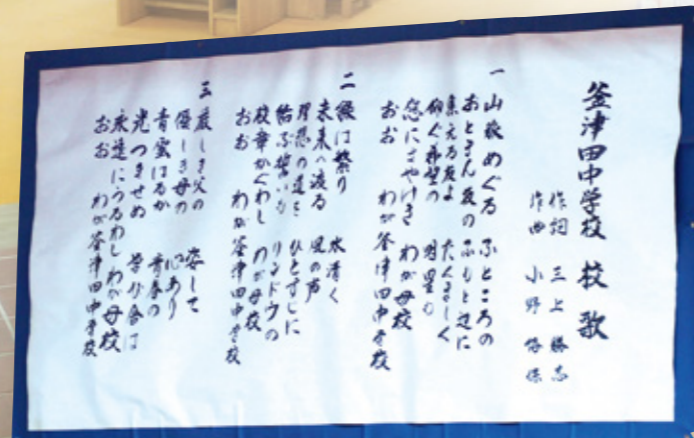 釜津田中学校 校歌
作詞 三上 勝志
作曲 小野
一 山脈めぐる ふところの
おとさん友の ふもと辺に
集える友よ たくましく
仰ぐ希望の 明星も
窓にさやけき わが母校
おお わが釜津田中学校
二 緑は繁り 水清く
未来へ渡る 風の声
理想の道を ひとすじに
結ぶ誓いも リンドウの
校章かぐわし わが母校
おお わが釜津田中学校
三 厳しき父の 姿して
優しき母の 心あり
青雲はるか 青春の
光つきせぬ 学び舎は
永遠にうるわし わが母校
おお わが釜津田中学校